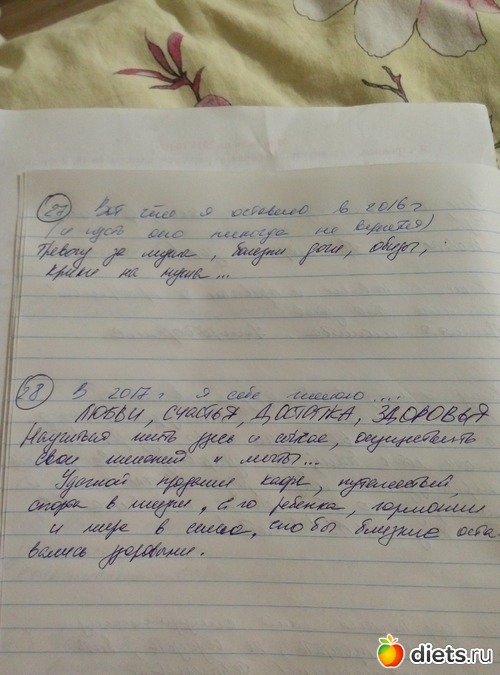 27 Вот что я оставлю в 2016 г
(и пусть оно никогда не вернется)
Тревогу за мужа, болезни дочи, обиды,
крики на мужа...
28 В 2017 г я себе желаю...
ЛЮБВИ, СЧАСТЬЯ, ДОСТАТКА, ЗДОРОВЬЯ
Научиться жить здесь и сейчас, осуществлять
свои желания и мечты...
Удачной продажи кафе, путешествий,
спорта в жизни, 2го ребенка, гармонии
и мира в семье, что бы близкие оста
вались здоровыми.
diets.ru